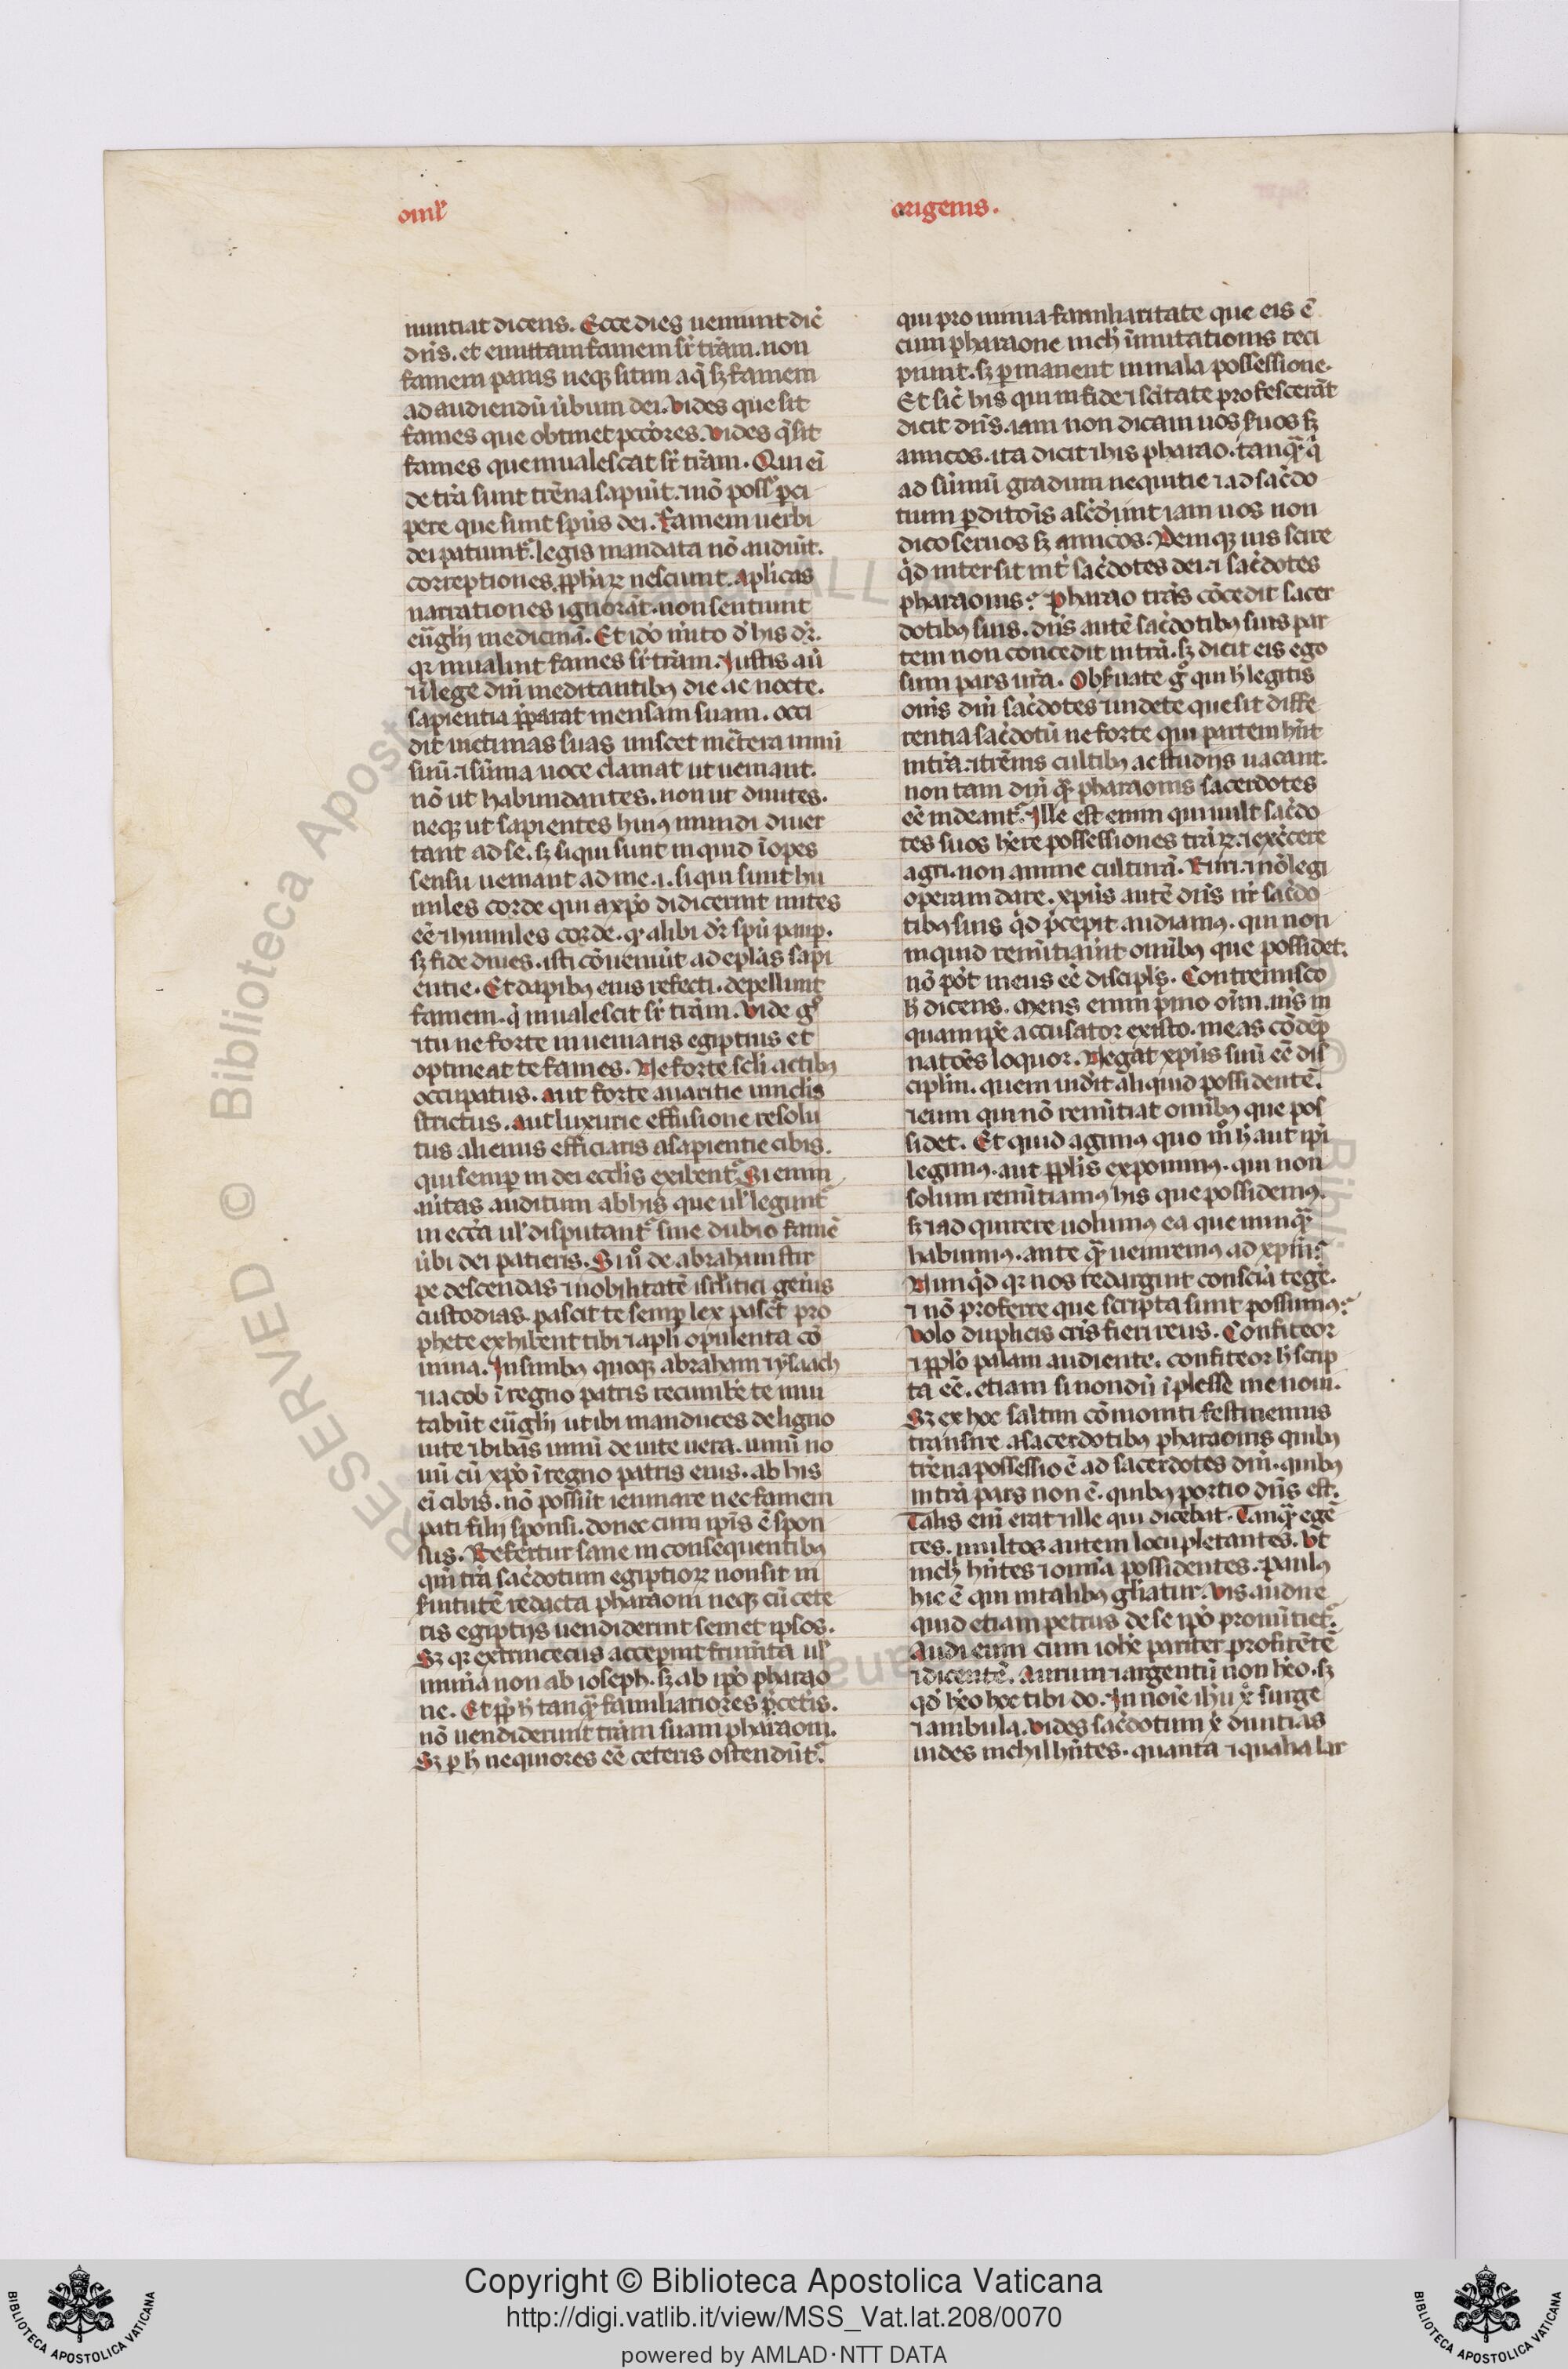 omił
origenis.
nuntiat dicens. Ecce dies ueniunt dič
dñs. et emittam famem sr̄ trȧm. non
famem panis neqʒ sitim aq̄ sʒ famem
ad audiendū u̇bum dei. Vides que sit
fames que obtinet pccōres. Vides q̄ sit
fames que inualescat sr̄ trȧm. Qui eī
de trȧ sunt trēna sapiūt. ⁊ nō poss̄ ꝑci
pere que sunt spūs dei. Famem uerbi
dei patiunt᷑. legis mandata nō audiūt.
correptiones ꝓpħaꝝ nesciunt. Aplicas
narrationes ignorāt. non sentiunt
euḡlij medicinā. Et ido mito đ his dr̄.
qꝛ inualuit fames sr̄ trȧm. Iustis aū
⁊ ī lege dn̄i meditantibꝰ die ac nocte.
sapientia p̄parat mensam suam. occi
dit uictimas suas miscet īcrȧtera uinū
suū. ⁊ sūma uoce clamat ut ueniant.
nō ut habundantes. non ut diuites.
neqʒ ut sapientes huiꝰ mundi diuer
tant ad se. sʒ si qui sunt inquid īopes
sensu ueniant ad me .i. si qui sunt hu
miles corde qui a xp̄o didicerint mites
eē ⁊ humiles corde. qꝛ alibi dr̄ spū pauꝑ.
sʒ fide diues. isti cōueniūt ad eplȧs sapi
entie. Et dapibꝰ eius refecti. depellunt
famem. q̄ inualescit sr̄ trȧm. Vide gͦ
⁊ tu ne forte inueniaris egiptius et
optineat te fames. Ne forte scli actibꝰ
occupatus. Aut forte auaritie uinclis
strictus. Aut luxurie effusione resolu
tus alienus efficiaris a sapientie cibis.
qui semꝑ in dei ecclīs exibent᷑. Si enim
au̇tas auditum ab his que ul᷑ legunt᷑
in ecc̄a ul᷑ disputant᷑ sine dubio famē
u̇bi dei patieris. Si uͦ de abraham stir
pe descendas ⁊ nobilitatē isrl̄itici genus
custodias. pascit te semꝑ lex pasc̄t pro
phete exhibent tibi ⁊ apl̄i opulenta cō
uiuia. In sinibꝰ quoqʒ abraham ⁊ ysaach
⁊ iacob ī regno patris recumbe᷑ te inui
tabūt euḡlij ut ibi manduces de ligno
uite ⁊ bibās uinū de uite uera. uinū no
uū cū xp̄o ī regno patris eius. ab his
eī cibis. nō possūt ieiunare nec famem
pati filij sponsi. donec cum ip̄is ē spon
sus. Refertur sane in consequentibꝰ
qn̄ trȧ sac̄dotum egiptioꝝ non sit in
s̄uitutē redacta pharaoni neqʒ cū cete
ris egiptijs uendiderint semet ipsos.
Sʒ qꝛ extrinsecus acceperint frum̄ta ul᷑
mun̄ia non ab ioseph. sʒ ab ip̄o pharao
ne. Et ꝓpꝑ ħ tanq̄ familiariores p̄ cetis.
nō uendiderunt trȧm suam pharaoni.
Sʒ ꝑ ħ nequiores eē ceteris ostendūt᷑.
qui pro nimia familiaritate que eis ē
cum pharaone nich̄ īmutationis reci
piunt. sʒ ꝑmanent in mala possessione.
Et sic̄ his qui in fide ⁊ sc̄itate profescerāt
dicit dn̄s. iam non dicam uos s̄uos sʒ
amicos. ita dicit ⁊ his pharao. tanq̄ q̄
ad sūmū gradum nequitie ⁊ ad sac̄do
tium ꝑditōis asc̄dȧnt iam uos non
dico seruos sʒ amicos. Deniqʒ uis scire
qd̄ intersit int̄ sac̄dotes dei. ⁊ sac̄dotes
pharaonis? Pharao trȧs cōcedit sacer
dotibꝰ suis. dn̄s autē sac̄dotibꝰ suis par
tem non concedit in trȧ. sʒ dicit eis ego
sum pars urȧ. Obs̄uate gͦ qui ħ legitis
om̄s dn̄i sac̄dotes ⁊ uidete que sit diffe
rentia sac̄dotū ne forte qui partem hn̄t
in trȧ. ⁊ trēnis cultibꝰ ac studijs uacant.
non tam dn̄i q̄ pharaonis sacerdotes
eē uideant᷑. Ille est enim qui uult sac̄do
tes suos her̄e possessiones trȧꝝ. ⁊ exerc̄ere
agri. non anime culturā. Ruri. ⁊ nō legi
operam dare. xp̄us autē dn̄s nr̄ sac̄do
tibꝰ suis qd̄ p̄cepit audiamꝰ. qui non
inquid renūtiauit omībꝰ que possidet.
nō pōt meus eē discipl̄s. Contremisco
ħ dicens. Meus enim p̄mo oīm. m̄s in
quam ip̄e accusator existo. meas cōdēp
natōēs loquor. Negat xp̄us suū eē dis
ciplm̄. quem uidit aliquid possidentē.
⁊ eum qui nō renūtiat omībꝰ que pos
sidet. Et quid agimꝰ quo mͦ ħ aut ip̄i
legimꝰ. aut ꝓplis exponimꝰ. qui non
solum renūtiamꝰ his que possidemꝰ.
sʒ ⁊ adquirere uolumꝰ ea que nunq̄
habuimꝰ. ante q̄ ueniremꝰ ad xp̄m?
Nunqd̄ qꝛ nos redarguit conscīa tege᷑.
⁊ nō proferre que scripta sunt possumꝰ?
Volo duplicis c̄is fieri reus. Confiteor
⁊ ꝓplo palam audiente. confiteor ħ scrip
ta eē. etiam si nondū īplesse me noui.
Sʒ ex hoc saltim cōmoniti festinemus
transire a sacerdotibꝰ pharaonis quibꝰ
trēna possessio ē ad sacerdotes dn̄i. quibꝰ
in trȧ pars non ē. quibꝰ portio dn̄s est.
Talis enī erat ⁊ ille qui dicebat. Tanq̄ egē
tes. multos autem locupletantes. Vt
nich̄ hn̄tes ⁊ omnia possidentes. Paulꝰ
hic ē qui in talibꝰ gl̄iatur. Vis audire
quid etiam petrus de se ip̄o pronūtiet᷑.
Audi eum cum ioh̄e pariter profitētē
⁊ dicentē. Aurum ⁊ argentū non heo. sʒ
qd̄ heo hoc tibi do. In noīe ih̄u x̄ surge
⁊ ambula. Vides sac̄dotum x̄ diuitias
uides nichil hn̄tes. quanta ⁊ qualia lar
Copyright © Biblioteca Apostolica Vaticana
http://digi.vatlib.it/view/MSS_Vat.lat.208/0070
powered by AMLAD·NTT DATA
BIBLIOTECA APOSTOLICA VATICANA
BIBLIOTECA APOSTOLICA VATICANA